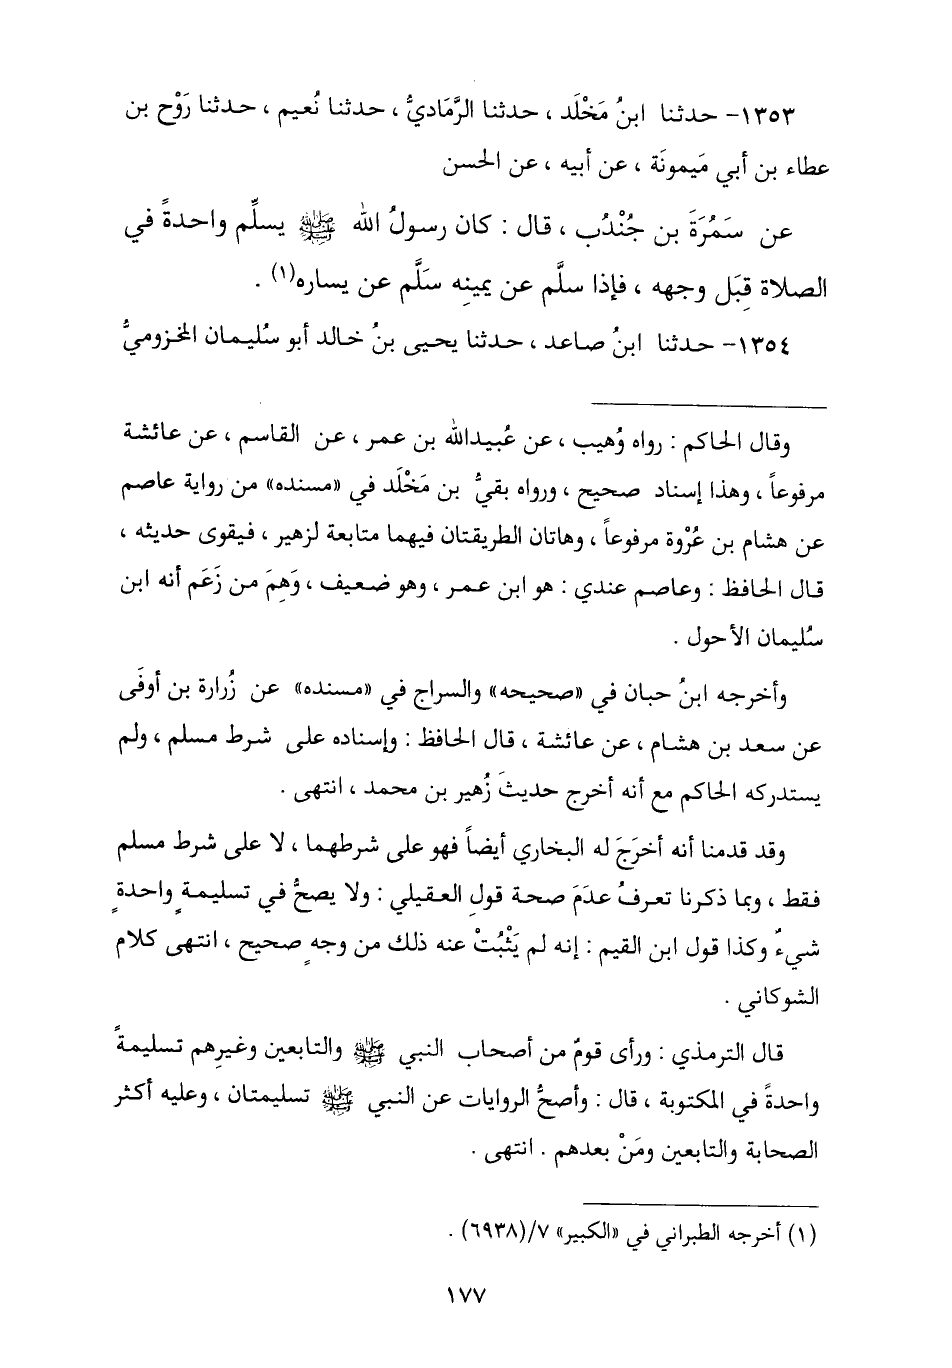 ١٣٥٣- حدثنا ابنُ مَخْلَد ، حدثنا الرَّمَاديُّ ، حدثنا نُعيم ، حدثنا رَوْح بن
عطاء بن أبي مَيمونَة ، عن أبيه ، عن الحسن
عن سَمُرَةَ بن جُنْدُب ، قال : كان رسولُ الله ﷺ يسلِّم واحدةً في
الصلاة قِبَل وجهه ، فإذا سلَّم عن يمينِه سَلَّم عن يساره(١) .
١٣٥٤- حدثنا ابنُ صاعد ، حدثنا يحيى بنُ خالد أبو سُليمان المخزوميُّ
وقال الحاكم : رواه وُهيب ، عن عُبيدالله بن عمر ، عن القاسم ، عن عائشة
مرفوعاً ، وهذا إسناد صحيح ، ورواه بقيُّ بن مَخْلَد في «مسنده» من رواية عاصم
عن هشام بن عُرْوة مرفوعاً ، وهاتان الطريقتان فيهما متابعة لزهير ، فيقوى حديثه ،
قال الحافظ : وعاصم عندي : هو ابن عمر ، وهو ضعيف ، وَهِمَ من زَعَم أنه ابن
سُليمان الأحول .
وأخرجه ابنُ حبان في «صحيحه» والسراج في «مسنده» عن زُرارة بن أوفَى
عن سعد بن هشام ، عن عائشة ، قال الحافظ : وإسناده على شرط مسلم ، ولم
يستدركه الحاكم مع أنه أخرج حديثَ زُهير بن محمد ، انتهى .
وقد قدمنا أنه أخرَجَ له البخاري أيضاً فهو على شرطهما ، لا على شرط مسلم
فقط ، وبما ذكرنا تعرفُ عدَمَ صحة قولِ العقيلي : ولا يصحُّ في تسليمةٍ واحدةٍ
شيءٌ وكذا قول ابن القيم : إنه لم يَثْبُتْ عنه ذلك من وجهٍ صحيح ، انتهى كلام
الشوكاني .
قال الترمذي : ورأى قومٌ من أصحاب النبي ﷺ والتابعين وغيرِهم تسليمةً
واحدةً في المكتوبة ، قال : وأصحُّ الروايات عن النبي ﷺ تسليمتان ، وعليه أكثر
الصحابة والتابعين ومَنْ بعدهم . انتهى .
(١) أخرجه الطبراني في «الكبير» ٧/(٦٩٣٨) .
١٧٧